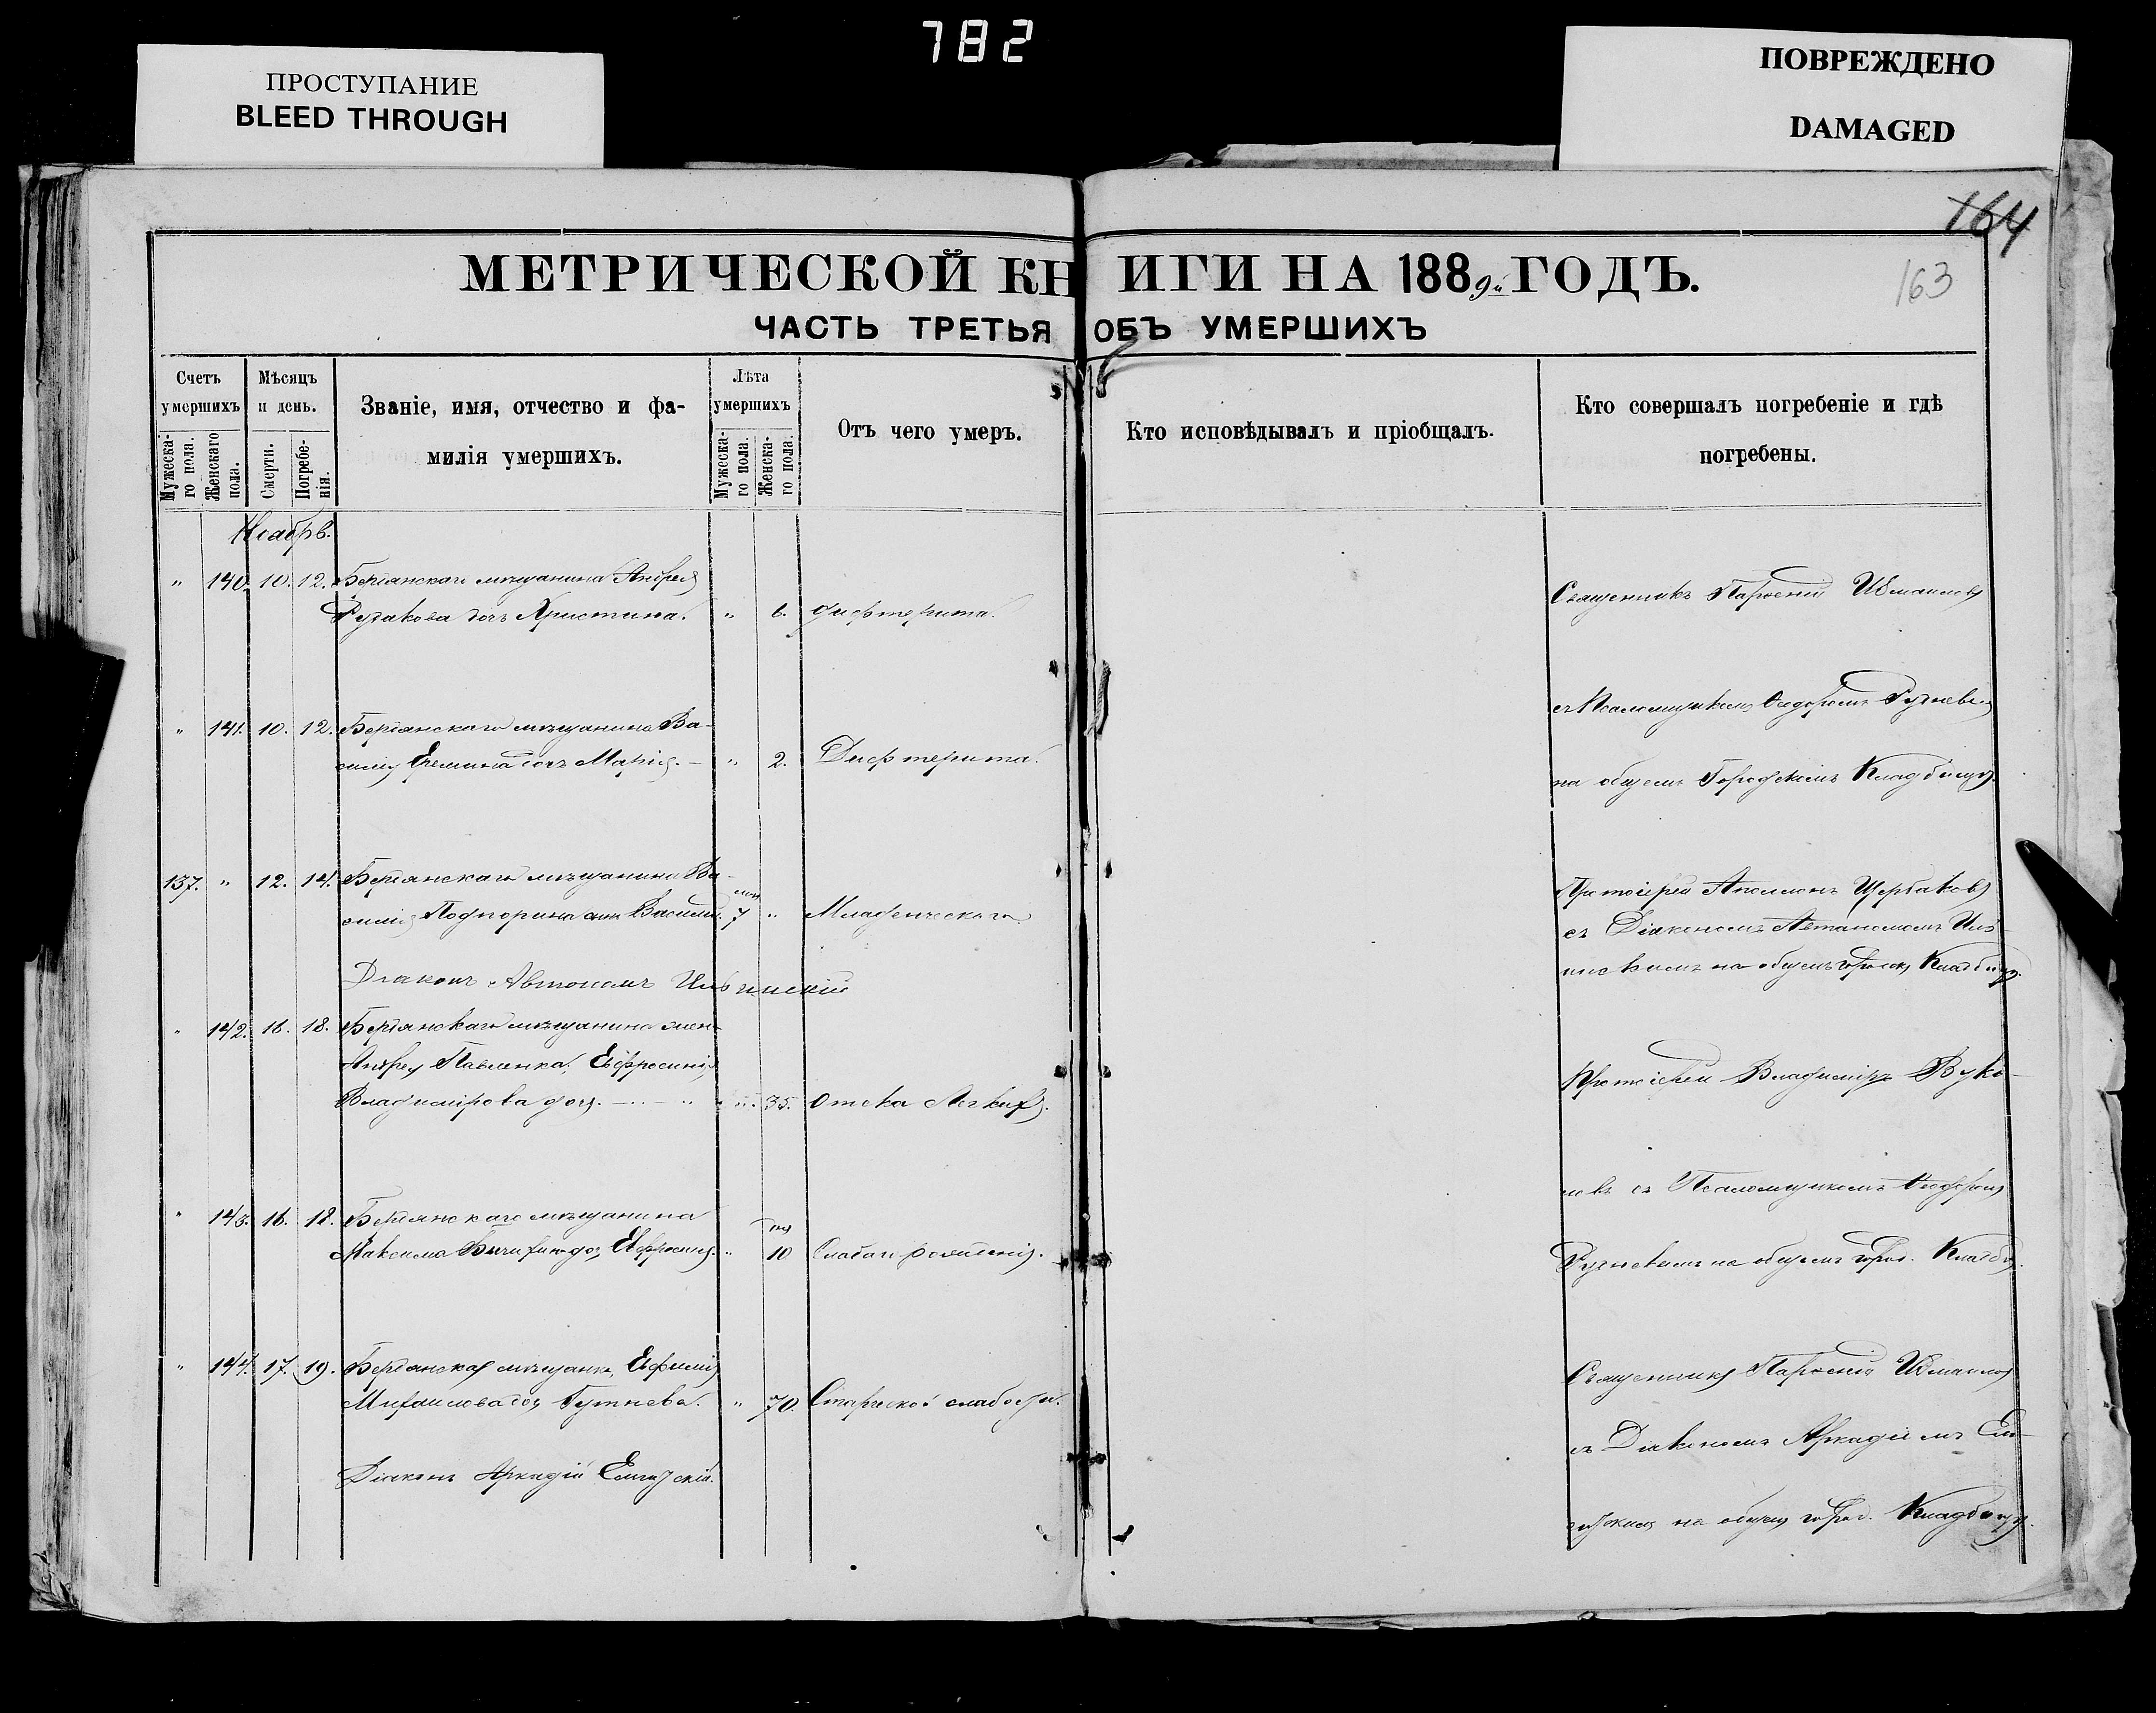 782
ПРОСТУПАНИЕ
BLEED THROUGH
ПОВРЕЖДЕНО
DAMAGED
164
163
МЕТРИЧЕСКОЙ КНИГИ НА 1889й ГОДЪ.
ЧАСТЬ ТРЕТЬЯ ОБЪ УМЕРШИХЪ
Счетъ умершихъ
Мѣсяцъ и день.
Званіе, имя, отчество и фа-
милія умершихъ.
Лѣта умершихъ
Отъ чего умеръ.
Кто исповѣдывалъ и пріобщалъ.
Кто совершалъ погребеніе и гдѣ
погребены.
Мужеска-
го пола.
Женскаго
пола.
Смерти.
Погребе-
нія.
Мужеска-
го пола.
Женска-
го пола.
Ноябрь.
" 140. 10. 12. Бердянскаго мѣщанина Андрея
дочь Христина. " 6. дифтерита.
Священникъ Парѳеній
" 141. 10. 12. Бердянскаго мѣщанина Ва-
силія Еремина дочь Марія. - " 2. Дифтерита.
съ Псаломщикомъ Ѳедоромъ
на общемъ Городскомъ Кладбищѣ.
137. " 12. 14. Бердянскаго мѣщанина Ва-
силія сынъ Василій. 7 " Младенческаго
Протоіерей Аполлонъ Щербаковъ
съ Діакономъ Автономомъ Иль-
инскимъ на общемъ городск. Кладбищѣ.
Діаконъ Автономъ Ильинскій
" 142. 16. 18. Бердянскаго мѣщанина жена
Андрея Павленка, Евфросинія
Владимірова дочь. " 35. Отека Легкихъ.
Протоіерей Владиміръ Вуко-
" 143. 16. 18. Бердянскаго мѣщанина
Максима дочь Евфросинія. " 10 Слабаго рожденія.
новъ съ Псаломщикомъ Ѳеодоромъ
на общемъ город. Кладб.
" 144. 17. 19. Бердянская мѣщанка, Евфимія
Михаилова дочь " 70. Старческой слабости.
Священникъ Парѳеній
съ Діакономъ Аркадіемъ
на общемъ город. Кладбищѣ.
Діаконъ Аркадій